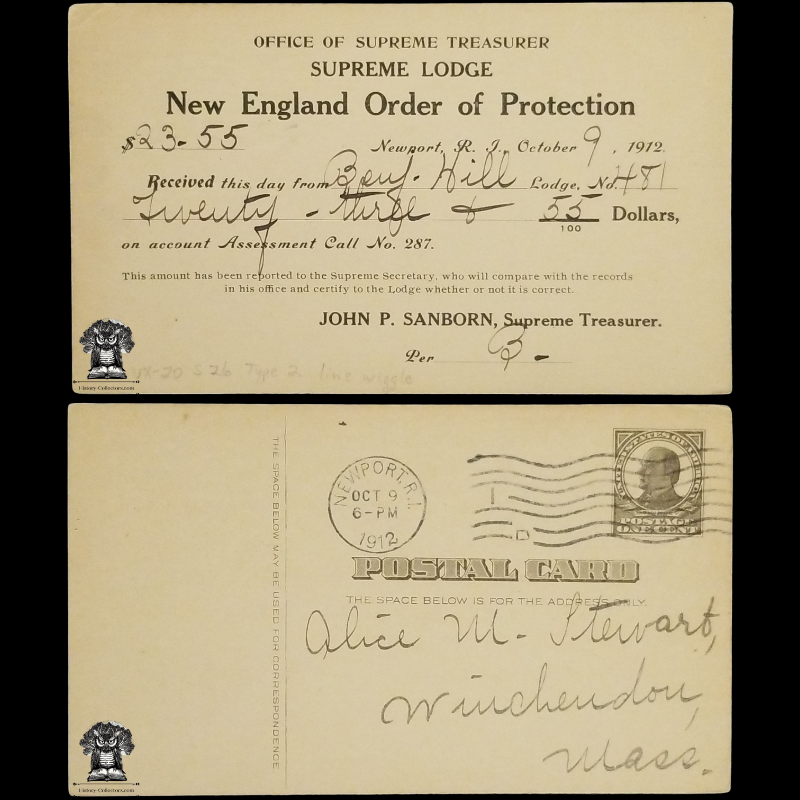 OFFICE OF SUPREME TREASURER
SUPREME LODGE
New England Order of Protection
$23-55 Newport, R. I., October 9, 1912.
Received this day from Benj. Hill Lodge, No. 481
Twenty-three & 55/100 Dollars,
on account Assessment Call No. 287.
This amount has been reported to the Supreme Secretary, who will compare with the records
in his office and certify to the Lodge whether or not it is correct.
JOHN P. SANBORN, Supreme Treasurer.
Per B-
S 26 Type 2 line wiggle
History-Collectors.com
THE SPACE BELOW MAY BE USED FOR CORRESPONDENCE
NEWPORT, R.I.
OCT 9
6-PM
1912
1
D
UNITED STATES OF AMERICA
POSTAGE
ONE CENT
POSTAL CARD
THE SPACE BELOW IS FOR THE ADDRESS ONLY.
Alice M. Stewart,
Winchendon,
Mass.
History-Collectors.com